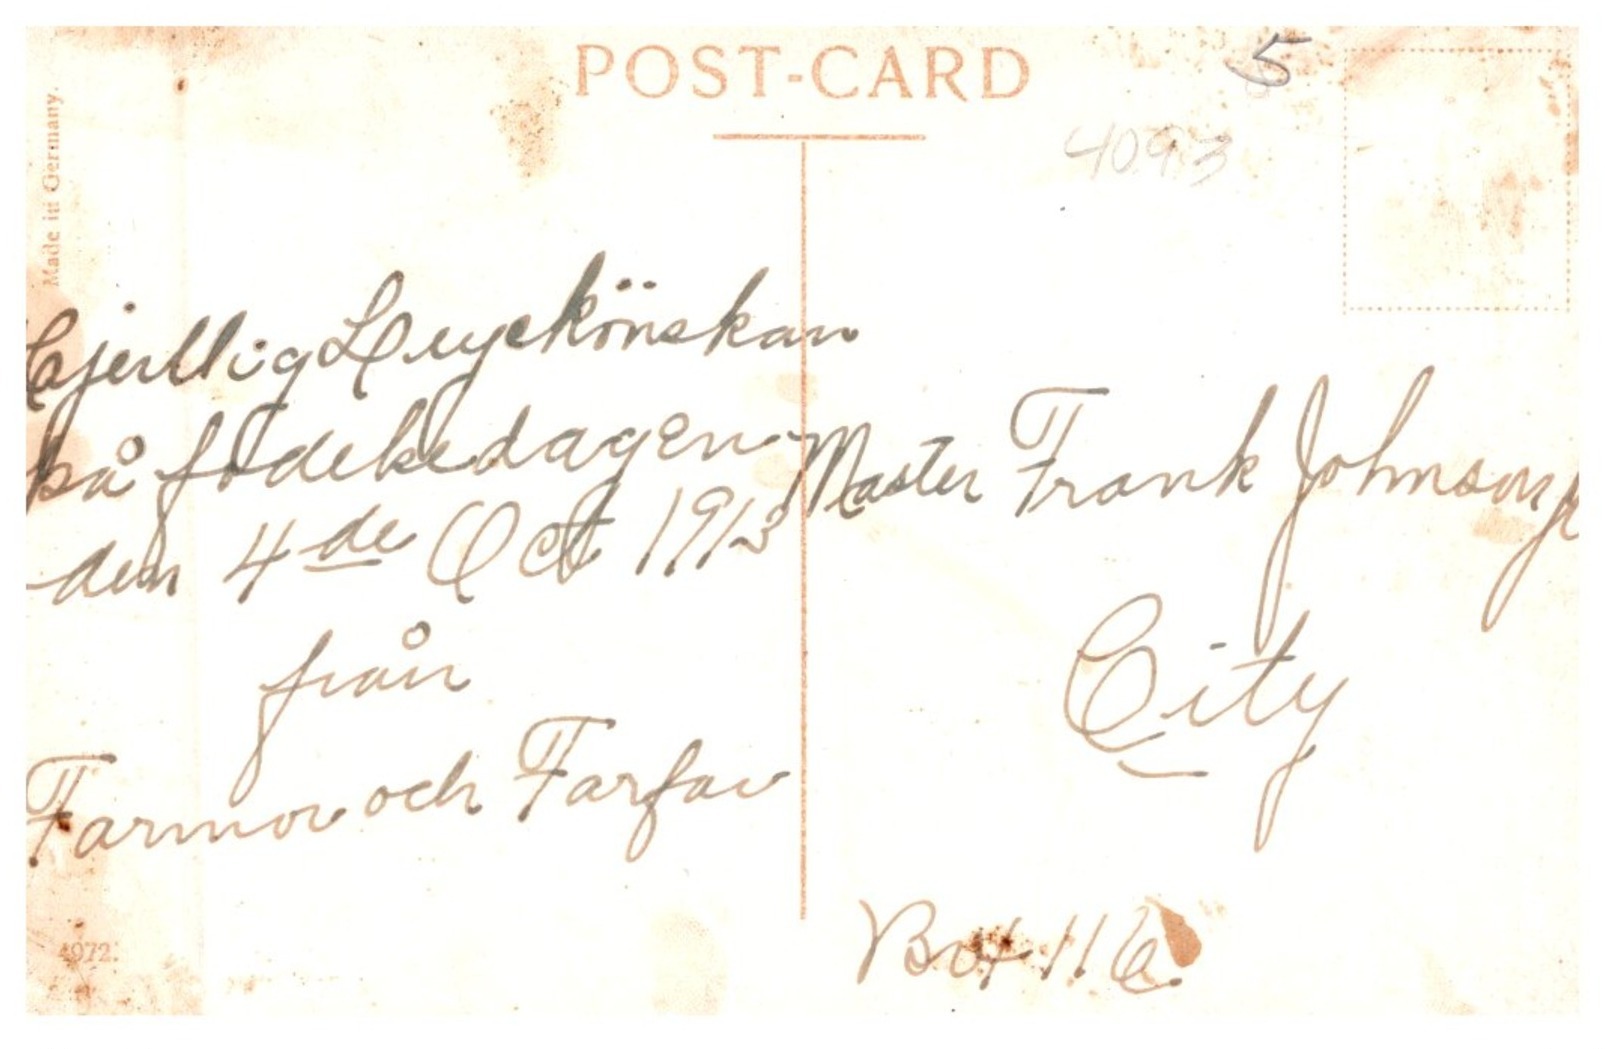 POST-CARD
5
4093
Made in Germany.
Hjertlig Lyckönskan
på födelsedagen
den 4de Oct 1913
från
Farmor och Farfar
Master Frank Johnson Jr
City
Box 116
4972.